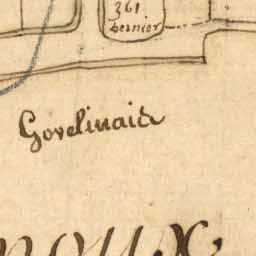 361
dernier
Govelinais
noux